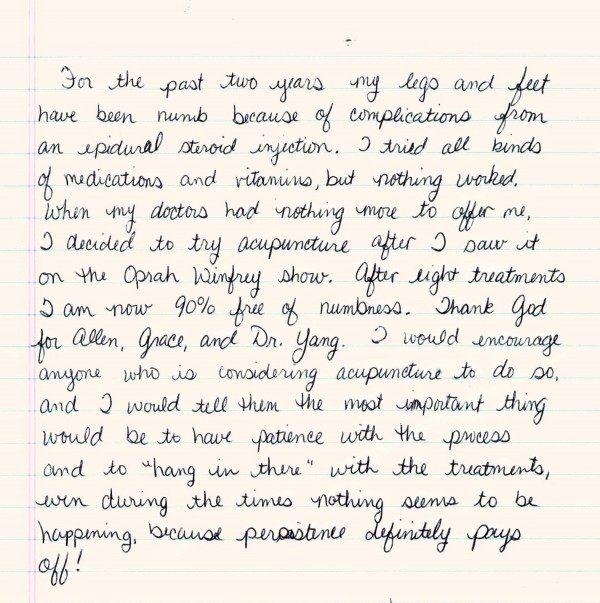 For the past two years my legs and feet
have been numb because of complications from
an epidural steroid injection. I tried all kinds
of medications and vitamins, but nothing worked.
When my doctors had nothing more to offer me,
I decided to try acupuncture after I saw it
on the Oprah Winfrey show. After eight treatments
I am now 90% free of numbness. Thank God
for Allen, Grace, and Dr. Yang. I would encourage
anyone who is considering acupuncture to do so,
and I would tell them the most important thing
would be to have patience with the process
and to "hang in there" with the treatments,
even during the times nothing seems to be
happening, because persistence definitely pays
off!